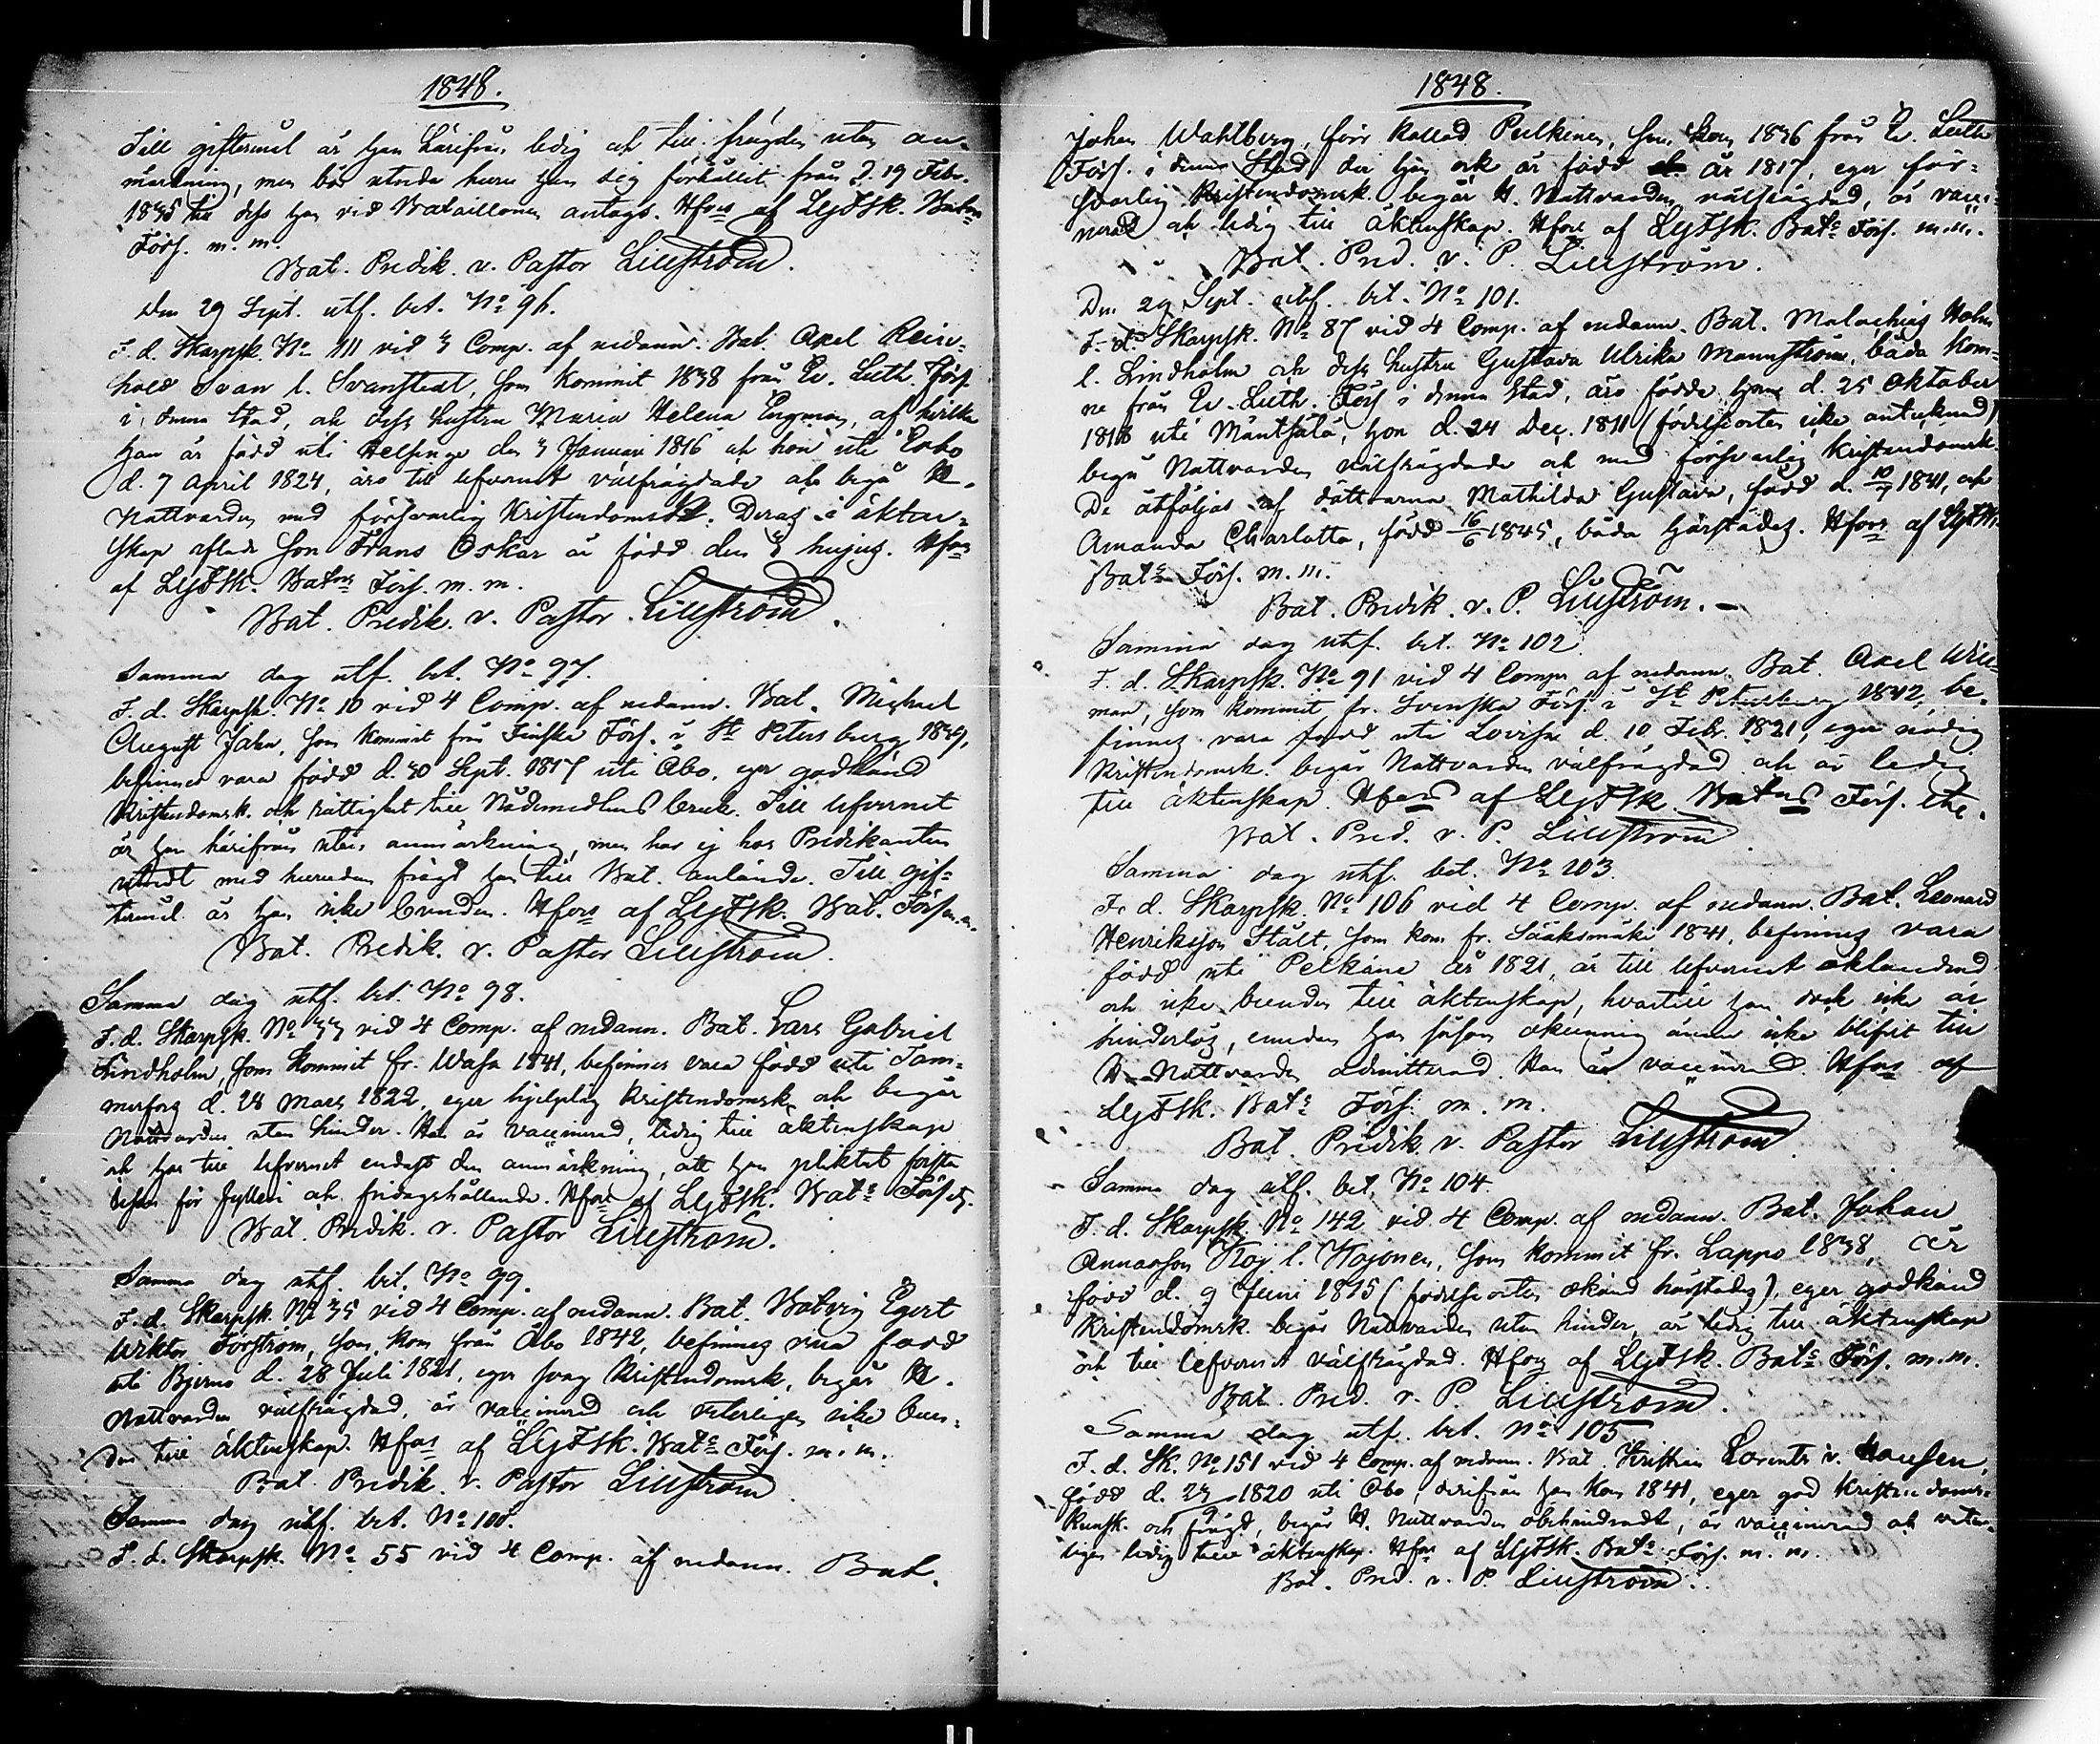 1848.
Till giftermål är han härifrån ledig och till frägden utan an-
märkning, men bör utreda huru han sig förhållit från d. 19 Febr.
1835 till dess han vid Bataillonen antags. Hfors af LGFSk. Batns
Förs. m. m.
Bat. Predik. v. Pastor Lillström.
Den 29 Sept. utf. bet. No 96.
F. d. Skarpsk. No 111 vid 3 Comp. af nedann. Bat. Axel Rein-
hold Svan l. Svanstedt, som kommit 1838 från Ev. Luth. Förs.
i denna stad, och dess hustru Maria Helena Engman, af hvilka
han är född uti Helsinge den 3 Januari 1816 och hon uti Esbo
d. 7 April 1824, äro till lefvernet välfrägdade och begå H.
Nattvarden med försvarlig Kristendomsk. Deras i äkten-
skap aflade son Frans Oskar är född den 3 hujus. Hfors
af LGFSk. Batns Förs. m. m.
Bat. Predik. v. Pastor Lillström.
Samma dag utf. bet. No 97.
F. d. Skarpsk. No 10 vid 4 Comp. af nedann. Bat. Michael
August Jahn, som kommit från Finska Förs. i St Petersburg 1839,
befinnes vara född d. 30 Sept. 1817 uti Åbo, eger godkänd
Kristendomsk. och rättighet till Nådemedlens bruk. Till lefvernet
är han härifrån utan anmärkning, men har ej hos Predikanten
utredt med hurudan frägd han till Bat. anlände. Till gif-
termål är han icke bunden. Hfors af LGFSk. Bat. Förs. m. m.
Bat. Predik. v. Pastor Lillström.
Samma dag utf. bet. No 98.
F. d. Skarpsk. No 33 vid 4 Comp. af nedann. Bat. Lars Gabriel
Lindholm, som kommit fr. Wasa 1841, befinnes vara född uti Tam-
merfors d. 28 Mars 1822, eger hjelplig Kristendomsk. och begår
Nattvarden utan hinder. Han är vaccinerad, ledig till äktenskap
och har till lefvernet endast den anmärkning, att han pliktat första
resan för fylleri och fridagshållande. Hfors af LGFSk. Bats Förs.
Bat. Predik. v. Pastor Lillström.
Samma dag utf. bet. No 99.
F. d. Skarpsk. No 35 vid 4 Comp. af nedann. Bat. Egert
Wiktor Forström, som kom från Åbo 1842, befinnes vara född
uti Bjerno d. 28 Juli 1821, eger svag Kristendomsk., begår H.
Nattvarden välfrägdad, är vaccinerad och veterligen icke bun-
den till äktenskap. Hfors af LGFSk. Bats Förs. m. m.
Bat. Predik. v. Pastor Lillström
Samma dag utf. bet. No 100.
F. d. Skarpsk. No 55 vid 4 Comp. af nedann. Bat.
1848.
Johan Wahlberg, förr kallad Pulkinen, som kom 1836 från Ev. Luth.
Förs. i denna Stad der han ock är född år 1817, eger för-
svarlig Kristendomsk. begår H. Nattvarden välfrägdad, är vacci-
nerad och ledig till äktenskap. Hfors af LGFSk. Bats Förs. m. m.
Bat. Pred. v. P. Lillström.
Den 29 Sept. utf. bet. No 101.
F. d. Skarpsk. No 87 vid 4 Comp. af nedann. Bat. Malachias Holm
l. Lindholm och dess hustru Gustava Ulrika Mannström, båda kom-
ne från Ev. Luth. Förs i denna Stad, äro födde han d. 25 Oktober
1818 uti Mäntsälä, hon d. 24 Dec. 1811 (födelseorten icke antecknad)
begå Nattvarden välfrägdade och med försvarlig Kristendomsk.
De åtföljas af döttrarna Mathilda Gustava, född d. 10/7 1841, och
Amanda Charlotta, född 16/6 1845, båda härstädes. Hfors af LGFSk.
Bats Förs. m. m.
Bat. Predik. v. P. Lillström.
Samma dag utf. bet. No 102.
F. d. Skarpsk. No 91 vid 4 Comp. af nedann. Bat. Axel Will-
man, som kommit fr. Svenska Förs. i St Petersburg 1842, be-
finnes vara född uti Lovisa d. 10 Febr. 1821, eger nödig
Kristendomsk. begår Nattvarden välfrägdad och är ledig
till äktenskap. Hfors af LGFSk. Batns Förs. etc.
Bat. Pred. v. P. Lillström
Samma dag utf. bet. No 103.
F. d. Skarpsk. No 106 vid 4 Comp. af nedann. Bat. Leonard
Henriksson Stålt, som kom fr. Sääksmäki 1841, befinnes vara
född uti Pelkäne år 1821, är till lefvernet oklandrad
och icke bunden till äktenskap, hvartill han dock icke är
hinderlös, emedan han såsom okunnig ännu icke blifvit till
H. Nattvarden admitterad. Han är vaccinerad. Hfors af
LGFSk. Bats Förs. m. m.
Bat. Predik. v. Pastor Lillström.
Samma dag utf. bet. No 104.
F. d. Skarpsk. No 142 vid 4 Comp. af nedann. Bat. Johan
Annasson Koj l. Kojonen, som kommit fr. Lappo 1838, är
född d. 9 Juni 1815 (födelseorten okänd härstädes), eger godkänd
Kristendomsk. begår Nattvarden utan hinder, är ledig till äktenskap
och till lefvernet välfrägdad. Hfors af LGFSk. Bats Förs. m. m.
Bat. Pred. v. P. Lillström.
Samma dag utf. bet. No 105
F. d. Sk. No 151 vid 4 Comp. af nedann. Bat. Kristian Lorentz v. Hausen,
född d. 1820 uti Åbo, derifrån han kom 1841, eger god Kristendoms-
kunsk. och frägd, begår H. Nattvarden obehindradt, är vaccinerad och veter-
ligen ledig till äktenskap. Hfors af LGFSk. Bats Förs. m. m.
Bat. Pred. v. P. Lillström.